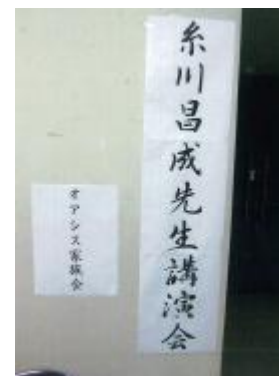 糸川昌成先生講演会
オアシス家族会